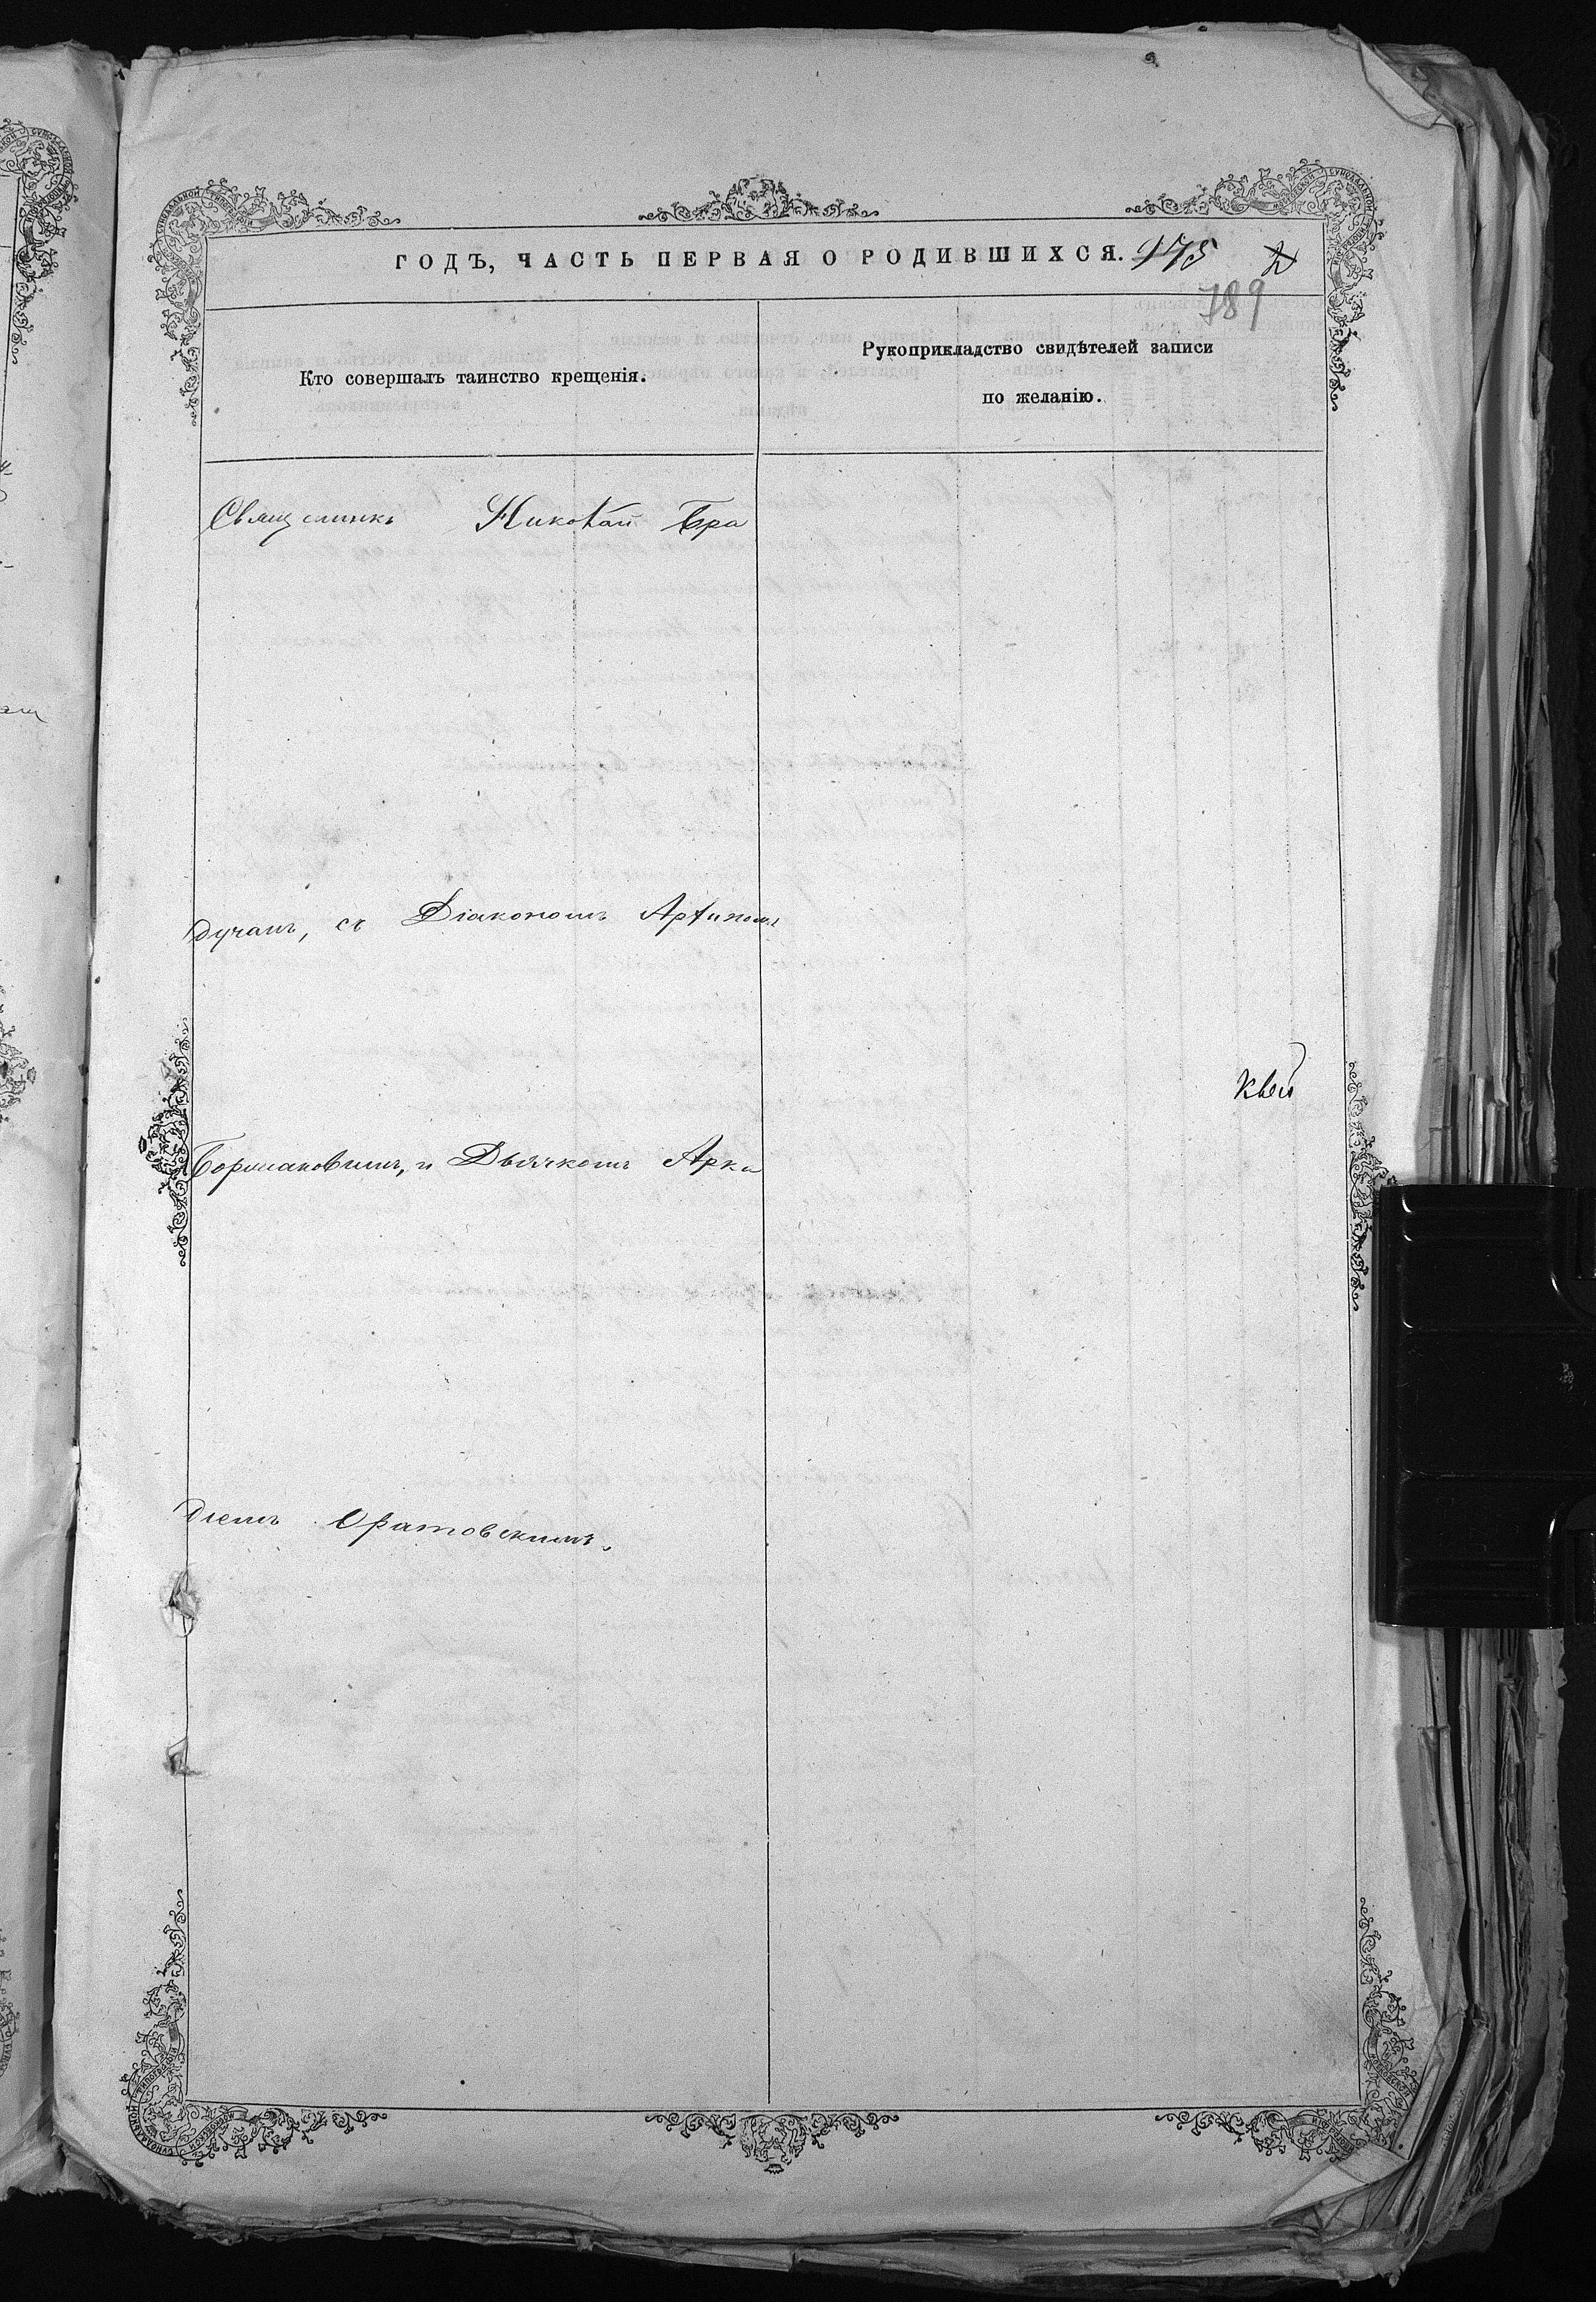 ГОДЪ, ЧАСТЬ ПЕРВАЯ О РОДИВШИХСЯ. 975 2
789
Кто совершалъ таинство крещенія.
Рукоприкладство свидѣтелей записи
по желанію.
Священникъ Николай Бра
дучанъ, съ Діакономъ
Дьячкомъ Арка
діемъ Оратовскимъ.